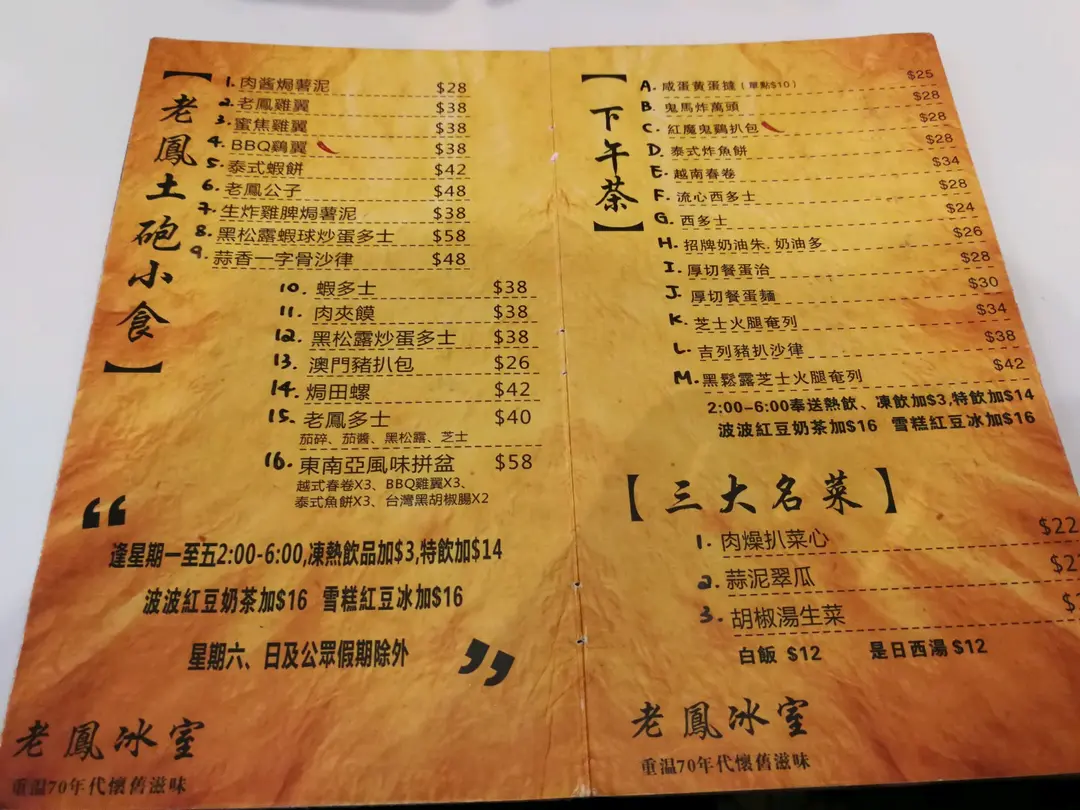 【老鳳土砲小食】
1. 肉酱焗薯泥 $28
2. 老鳳雞翼 $38
3. 蜜焦雞翼 $38
4. BBQ鷄翼 $38
5. 泰式蝦餅 $42
6. 老鳳公子 $48
7. 生炸雞脾焗薯泥 $38
8. 黑松露蝦球炒蛋多士 $58
9. 蒜香一字骨沙律 $48
10. 蝦多士 $38
11. 肉夾饃 $38
12. 黑松露炒蛋多士 $38
13. 澳門豬扒包 $26
14. 焗田螺 $42
15. 老鳳多士 $40
茄碎、茄醬、黑松露、芝士
16. 東南亞風味拼盆 $58
越式春卷X3、BBQ雞翼X3、
泰式魚餅X3、台灣黑胡椒腸X2
“
逢星期一至五2:00-6:00,凍熱飲品加$3,特飲加$14
波波紅豆奶茶加$16 雪糕紅豆冰加$16
星期六、日及公眾假期除外
”
老鳳冰室
重温70年代懷舊滋味
【下午茶】
A. 咸蛋黄蛋撻（單點$10） $25
B. 鬼馬炸萬頭 $28
C. 紅魔鬼鷄扒包 $28
D. 泰式炸魚餅 $28
E. 越南春卷 $34
F. 流心西多士 $28
G. 西多士 $24
H. 招牌奶油朱.奶油多 $26
I. 厚切餐蛋治 $28
J. 厚切餐蛋麵 $30
K. 芝士火腿奄列 $34
L. 吉列豬扒沙律 $38
M. 黑鬆露芝士火腿奄列 $42
2:00-6:00奉送熱飲、凍飲加$3,特飲加$14
波波紅豆奶茶加$16 雪糕紅豆冰加$16
【三大名菜】
1. 肉燥扒菜心 $22
2. 蒜泥翠瓜
3. 胡椒湯生菜
白飯 $12 是日西湯 $12
老鳳冰室
重温70年代懷舊滋味